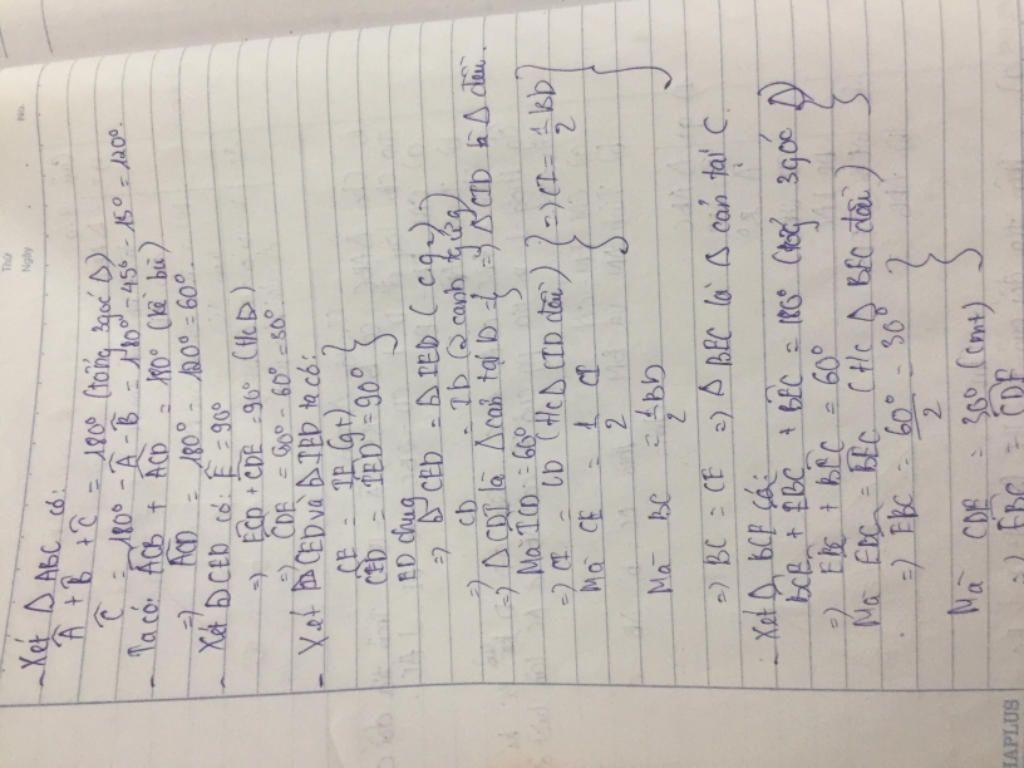 Thứ
Ngày
No.
- Xét Δ ABC có:
Â + B̂ + Ĉ = 180° (tổng 3 góc Δ)
Ĉ = 180° - Â - B̂ = 180° - 45° - 15° = 120°.
- Ta có: ACB + ACD = 180° (kề bù)
=> ACD = 180° - 120° = 60°.
- Xét Δ CED có: Ê = 90°
=> ECD + CDE = 90° (Hc Δ)
=> CDE = 90° - 60° = 30°.
- Xét Δ CED và Δ IED ta có:
CE = IE (gt)
CED = IED = 90° }
ED chung
=> Δ CED = Δ IED (c.g.c)
=> CD = ID (2 cạnh tứ)
=> Δ CDI là Δ cân tại D } => Δ CID là Δ đều.
Mà ICD = 60°
=> CI = CD (Hc Δ CID đều) } => CI = 1/2 BD
Mà CE = 1/2 CI
Mà BC = 1/2 BD
=> BC = CE => Δ BEC là Δ cân tại C.
- Xét Δ BCE có:
BCE + EBC + BEC = 180° (tổng 3 góc Δ)
=> EBC + BEC = 60° }
Mà EBC = BEC (Hc Δ BEC đều)
=> EBC = 60°/2 = 30° }
Mà CDE = 30° (cmt)
=> EBC = CDE
HAPLUS